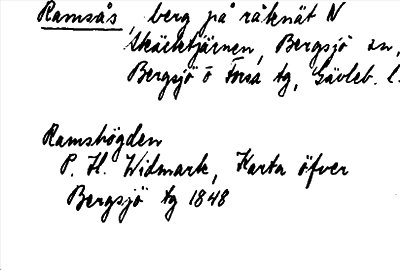 Ramsås, berg på råknät N
Skärketjärnen, Bergsjö sn,
Bergsjö o Forsa tg, Gävleb. l.
Ramshögden
P. H. Widmark, Karta öfver
Bergsjö tg 1848